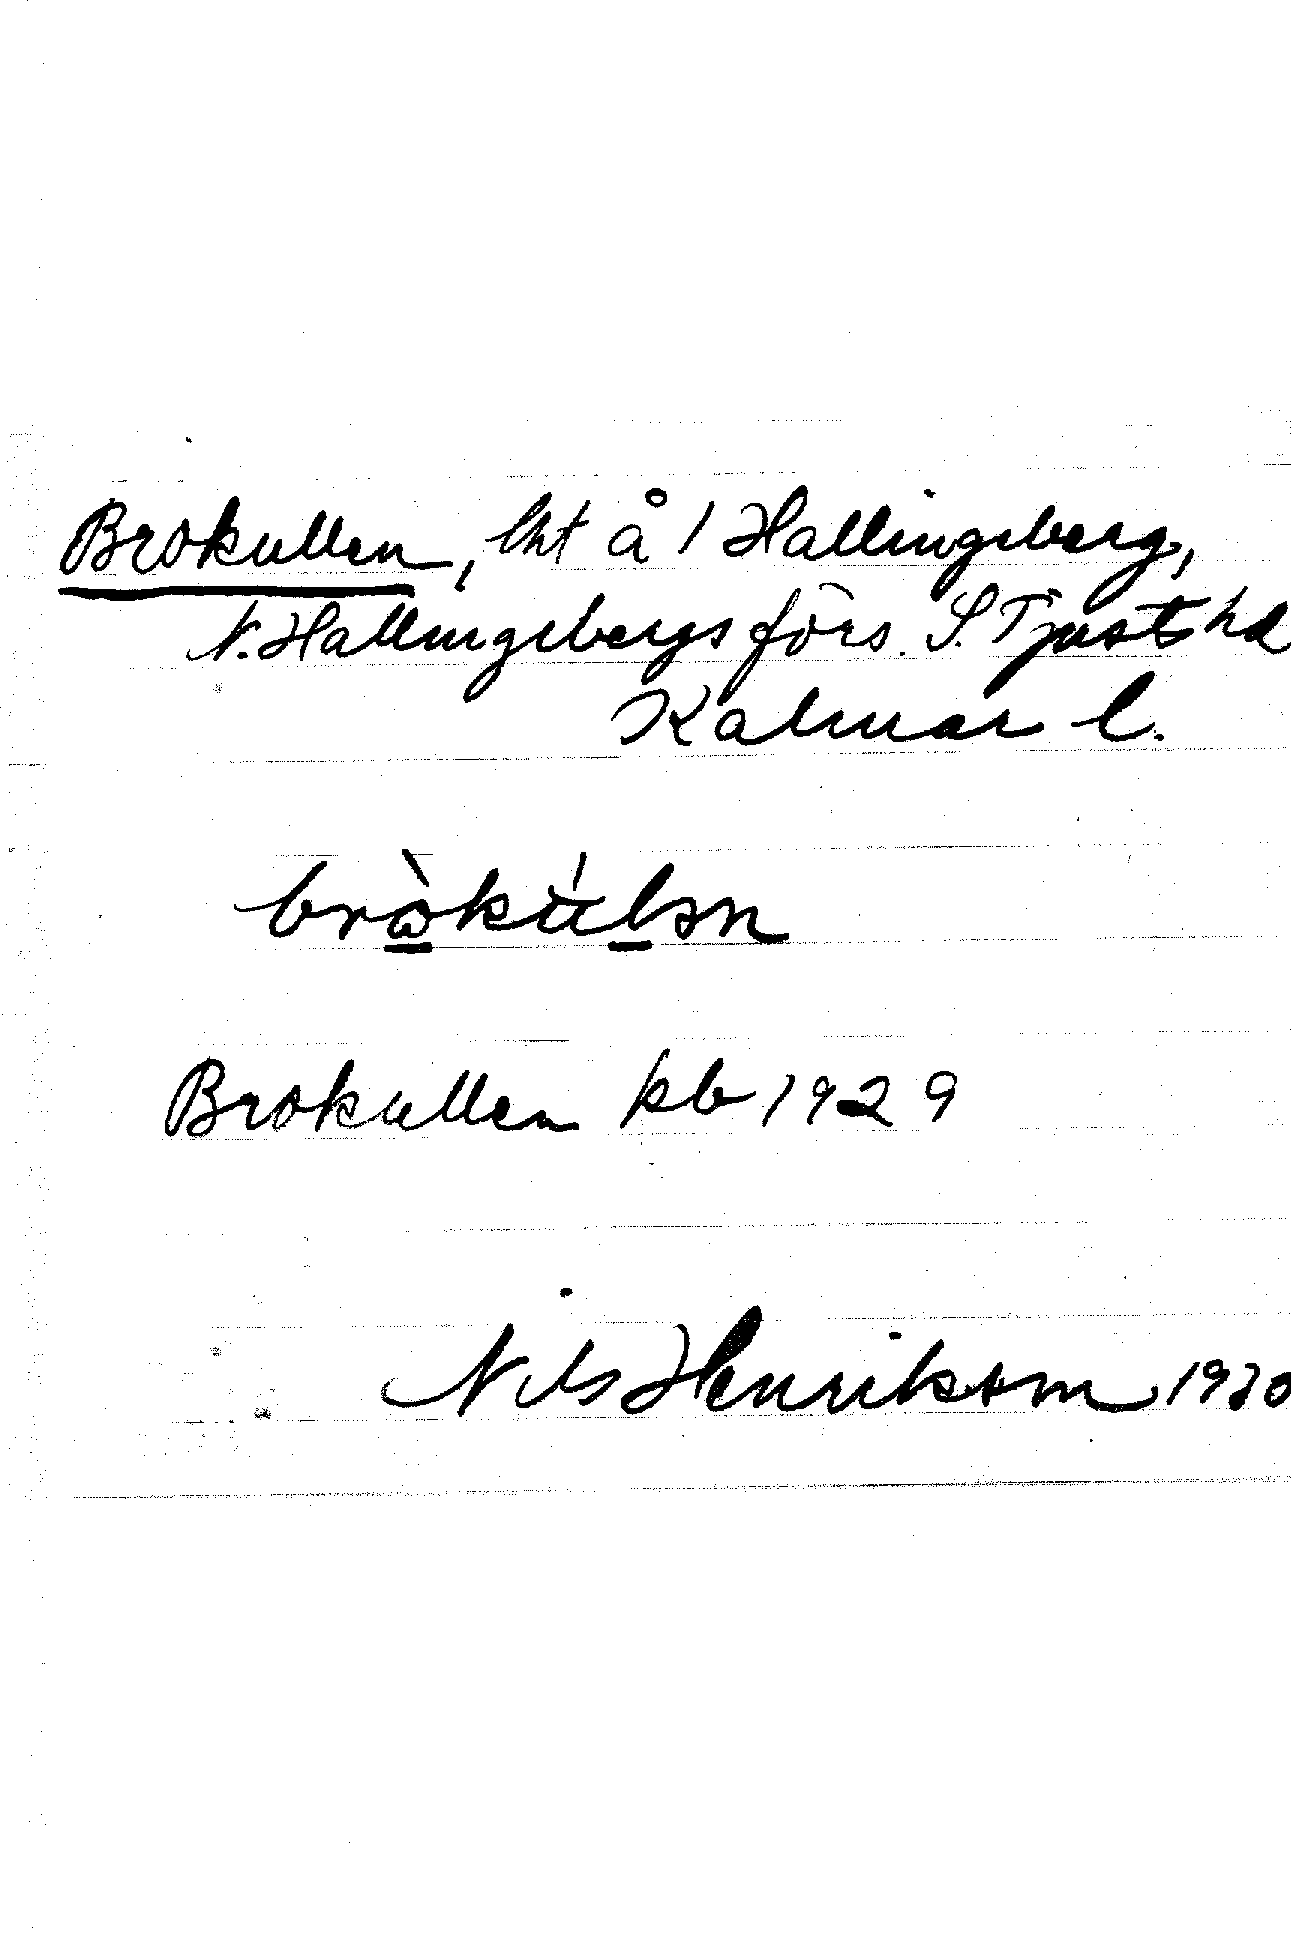 Brokullen, lht å 1 Hallingeberg,
N. Hallingebergs förs. S. Tjusts hd
Kalmar l.
Brokullen kb 1929
Nils Henrikson 1930